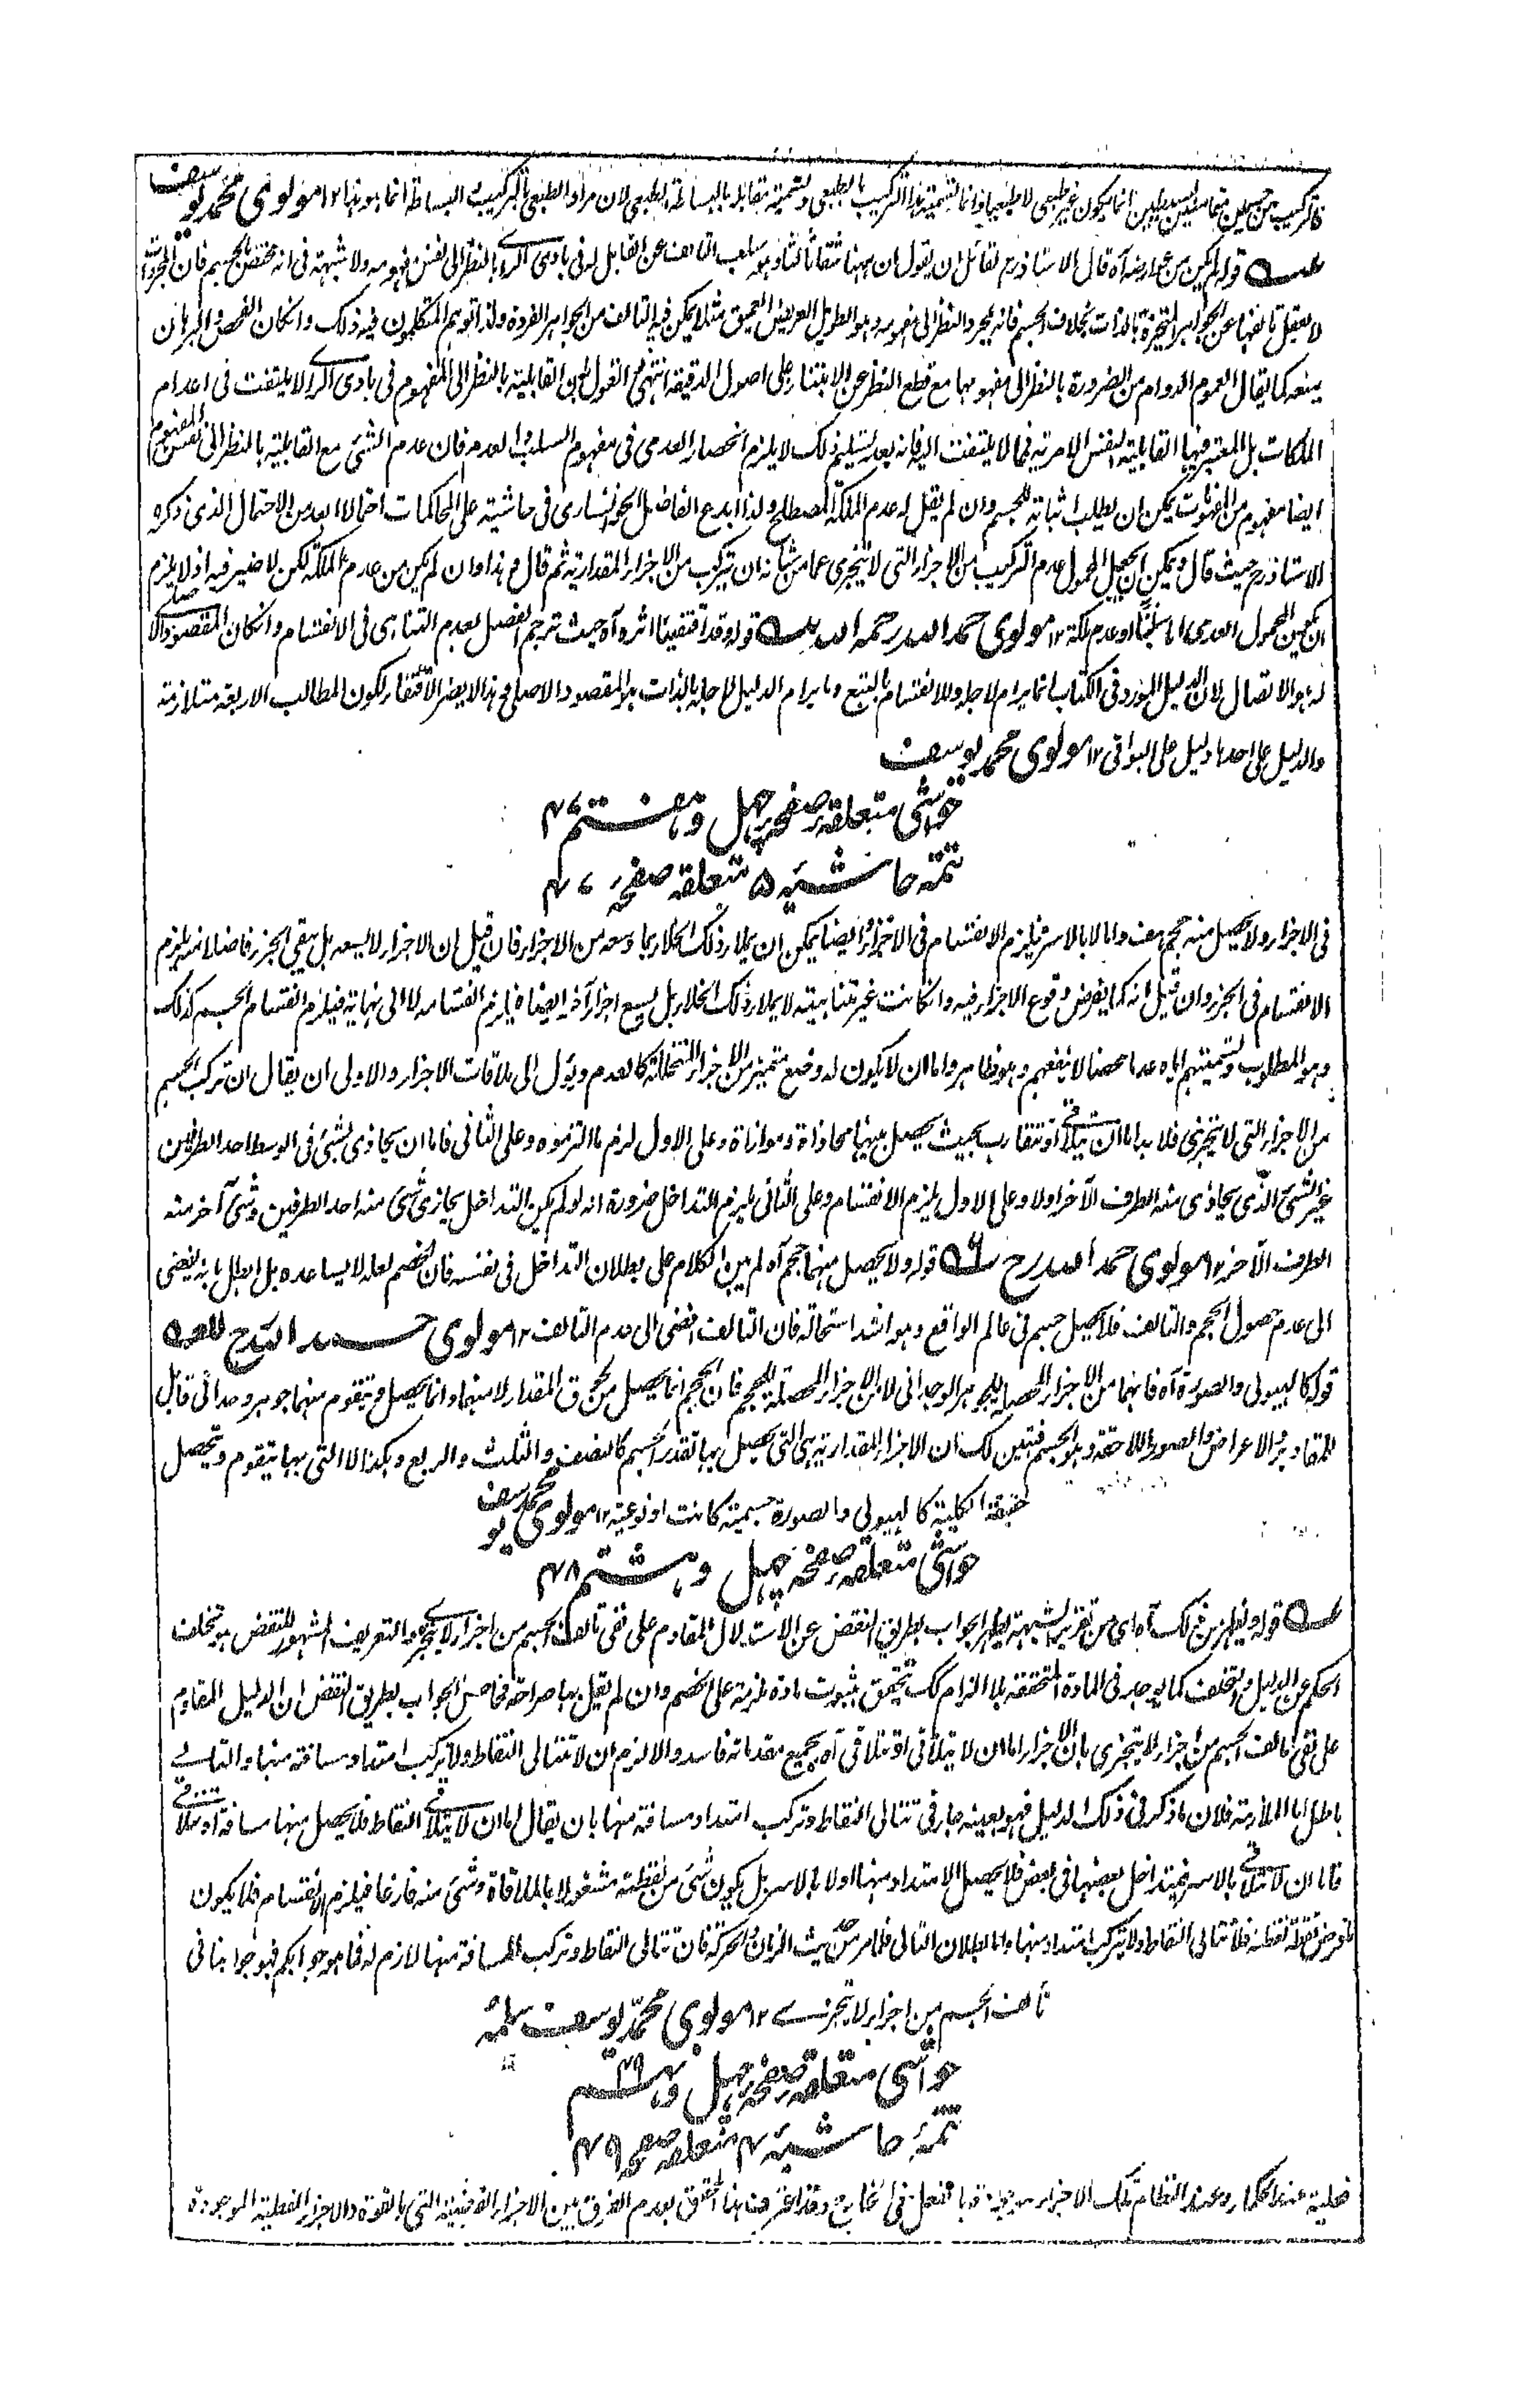 فالتركيب من جسمين متماسين ليسطيين انما يكون غير طبيعي لا طبيعيا وانما لتسمية هذا التركيب بالطبعي وتسمية مقابله بالبساطة الطبعي لان مراد الطبعي بالتركيب والبساطة انما هو هذا ١٢ مولوي محمد يوسف
قوله لم يكن من عوارضه آه قال الاستاذ رح لقائل ان يقول ان ههنا شقا ثالثا وهو سلب التالف عن القابل له في بادى الراے بالنظر الى نفس مفهومه ولا شبهة في انه مختص بالجسم فان المجردات
لا يعقل تالفها عن الجواهر المتحيزة بالذات بخلاف الجسم فانه بمجرد النظر الى مفهومه وهو الطويل العريض العميق مثلا يمكن فيه التالف من الجواهر الفردة ولذا توهم المتكلمون فيه ذلك وان كان الفحص والبرهان
يمنعه كما يقال العموم الدوام من الضرورة بالنظر الى مفهومهما مع قطع النظر عن الابتناء على اصول الدقيقة انتهى القول بان القابلية بالنظر الى المفهوم في بادى الراے لا يلتفت في اعدام
الملكات بل المعتبر فيها القابلية النفس الامرية فما لا يلتفت اليه فانه بعد تسليم ذلك لا يلزم انحصار العدمي في مفهوم السلب والعدم فان عدم الشئ مع القابلية بالنظر الى نفس المفهوم
ايضا مفهوم من المفهومات يمكن ان يطلب اثباته للجسم وان لم يقل له عدم الملكة المصطلح ولذا ابدع الفاضل الخوانساري في حاشيته على المحاكمات احتمالا ابعد من الاحتمال الذي ذكره
الاستاذ رح حيث قال ويمكن ان يجعل المحمول عدم التركيب من الاجزاء التي لا تتجزى عما من شانه ان يتركب من الاجزاء المقدارية ثم قال وهذا وان لم يكن من عدم الملكة لكن لا ضير فيه اذ لا يلزم
ان يكون المحمول العدمي اما سلبا او عدم ملكة ١٢ مولوي حمد الله رحمه الله قوله وقد اقتفينا اثره آه حيث ترجم الفصل بعدم التناهي في الانقسام وان كان المقصود الاصلے
له هو الاتصال لان الدليل المورد في الكتاب انما يرام لاجله وللانقسام بالتبع وما يرام الدليل لاجله بالذات هو المقصود الاصلي وهذا لا يضر الاقتفاء لكون المطالب الاربعة متلازمة
والدليل على احدها دليل على البواقي ١٢ مولوي محمد يوسف
حواشي متعلقه صفحه چهل و هفتم ٤٧
تتمه حاشيه ٥ متعلقه صفحه ٤٧
في الاجزاء ولا يحصل منه حجم هف واما لا بالاسر فيلزم الانقسام في الاجزاء وايضا يمكن ان يملأ ذلك الخلاء بما وسعه من الاجزاء فان قيل ان الاجزاء لا يسعه بل يبقى الجزء فاضلا منه يلزم
الانقسام في الجزء وان قيل انه كما يفرض وقوع الاجزاء فيه وان كانت غير متناهية لا يملأ ذلك الخلاء بل يسع اجزاء آخر ايضا فيلزم انقسامه لا الى نهاية فيلزم انقسام الجسم كذلك
وهو المطلوب وتسميتهم اياه عدما محضا لا ينفعهم وهو ظاهر واما ان لا يكون له وضع متميز من الاجزاء المتخللة كالعدم ويؤل الى ملاقات الاجزاء والاولى ان يقال ان تركب الجسم
من الاجزاء التي لا تتجزى فلا بد اما ان تتلاقى او تتقارب بحيث يحصل بينها محاذاة وموازاة وعلى الاول لزم ما التزموه وعلى الثاني فاما ان يحاذى بشئ في الوسط احد الطرفين
غير الشئ الذي يحاذى منه الطرف الآخر اولا وعلى الاول يلزم الانقسام وعلى الثاني يلزم التداخل ضرورة انه لو لم يكن التداخل يحاذى شئ منه احد الطرفين وشئ آخر منه
الطرف الآخر ١٢ مولوي حمد الله رح قوله ولا يحصل منهما حجم آه لم يبن الكلام على بطلان التداخل في نفسه فان الخصم لعله لا يساعده بل ابطل بانه يفضي
الى عدم حصول الحجم والتالف فلا يحصل جسم في عالم الواقع وهو اشد استحالة فان التالف افضى الى عدم التالف ١٢ مولوي حمد الله رح
قوله كالهيولى والصورة آه فانهما من الاجزاء المحصلة للجوهر الوحداني لا من الاجزاء المحصلة للحجم فان الحجم انما يحصل من لحوق المقدار لا منهما وانما يحصل ويتقوم منهما جوهر وحداني قابل
للمقادير والاعراض والصور اللاحقة وهو الجسم فتبين لك ان الاجزاء المقدارية هي التي يحصل بها تقدر الجسم كالنصف والثلث والربع وهكذا لا التي بها يتقوم ويتحصل
حقيقة الكلية كالهيولى والصورة جسمية كانت او نوعية ١٢ مولوي محمد يوسف
حواشي متعلقه صفحه چهل و هشتم ٤٨
قوله ويظهر من ذلك آه اى من تقرير الشبهة يظهر الجواب بطريق النقض عن الاستدلال المقاوم على نفي تالف الجسم من اجزاء لا تتجزے والتعريف المشهور للنقض هو تخلف
الحكم عن الدليل والتخلف كما يوجد في المادة المتحققة بلا التزام كك يتحقق بثبوت مادة ملزمة على الخصم وان لم يقل بها صراحة فحاصل الجواب بطريق النقض ان الدليل المقاوم
على نفي تالف الجسم من اجزاء لا يتجزى بان الاجزاء اما ان لا يتلاقى او تتلاقى آه بجميع مقدماته فاسد والا لزم ان لا تتتالى النقاط ولا يتركب امتداد مسافة منها والتالے
باطل اما الملازمة فلان ما ذكر في ذلك الدليل فهو بعينه جار في تتالى النقاط وتركب امتداد مسافة منها بان يقال اما ان لا يتلاقے النقاط فلا يحصل منها مسافة او تتلاقے
فاما ان لا تتلاقے بالاسر فيتداخل بعضها في بعض فلا يحصل الامتداد منها اولا بالاسر بل يكون شئ من نقطة مشغولا بالملاقاة وشئ منه فارغا فيلزم الانقسام فلا يكون
ما فرض نقطة نقطة فلا تتتالى النقاط ولا يتركب امتداد منها واما بطلان التالى فلما مر من حيث الزمان والحركة فان تتالى النقاط وتركب المسافة منها لازم له فما هو جوابكم فهو جوابنا في
تالف الجسم من اجزاء لا تتجزے ١٢ مولوي محمد يوسف سلمه
حواشي متعلقه صفحه چهل و نهم ٤٩
تتمه حاشيه ٤ متعلقه صفحه ٤٩
فعلية عند الحكماء وعند النظام تلك الاجزاء موجودة بالفعل في الخارج وقد اعترف هذا المحقق بعدم الفرق بين الاجزاء الفرضية التي بالقوة والاجزاء الفعلية الموجودة